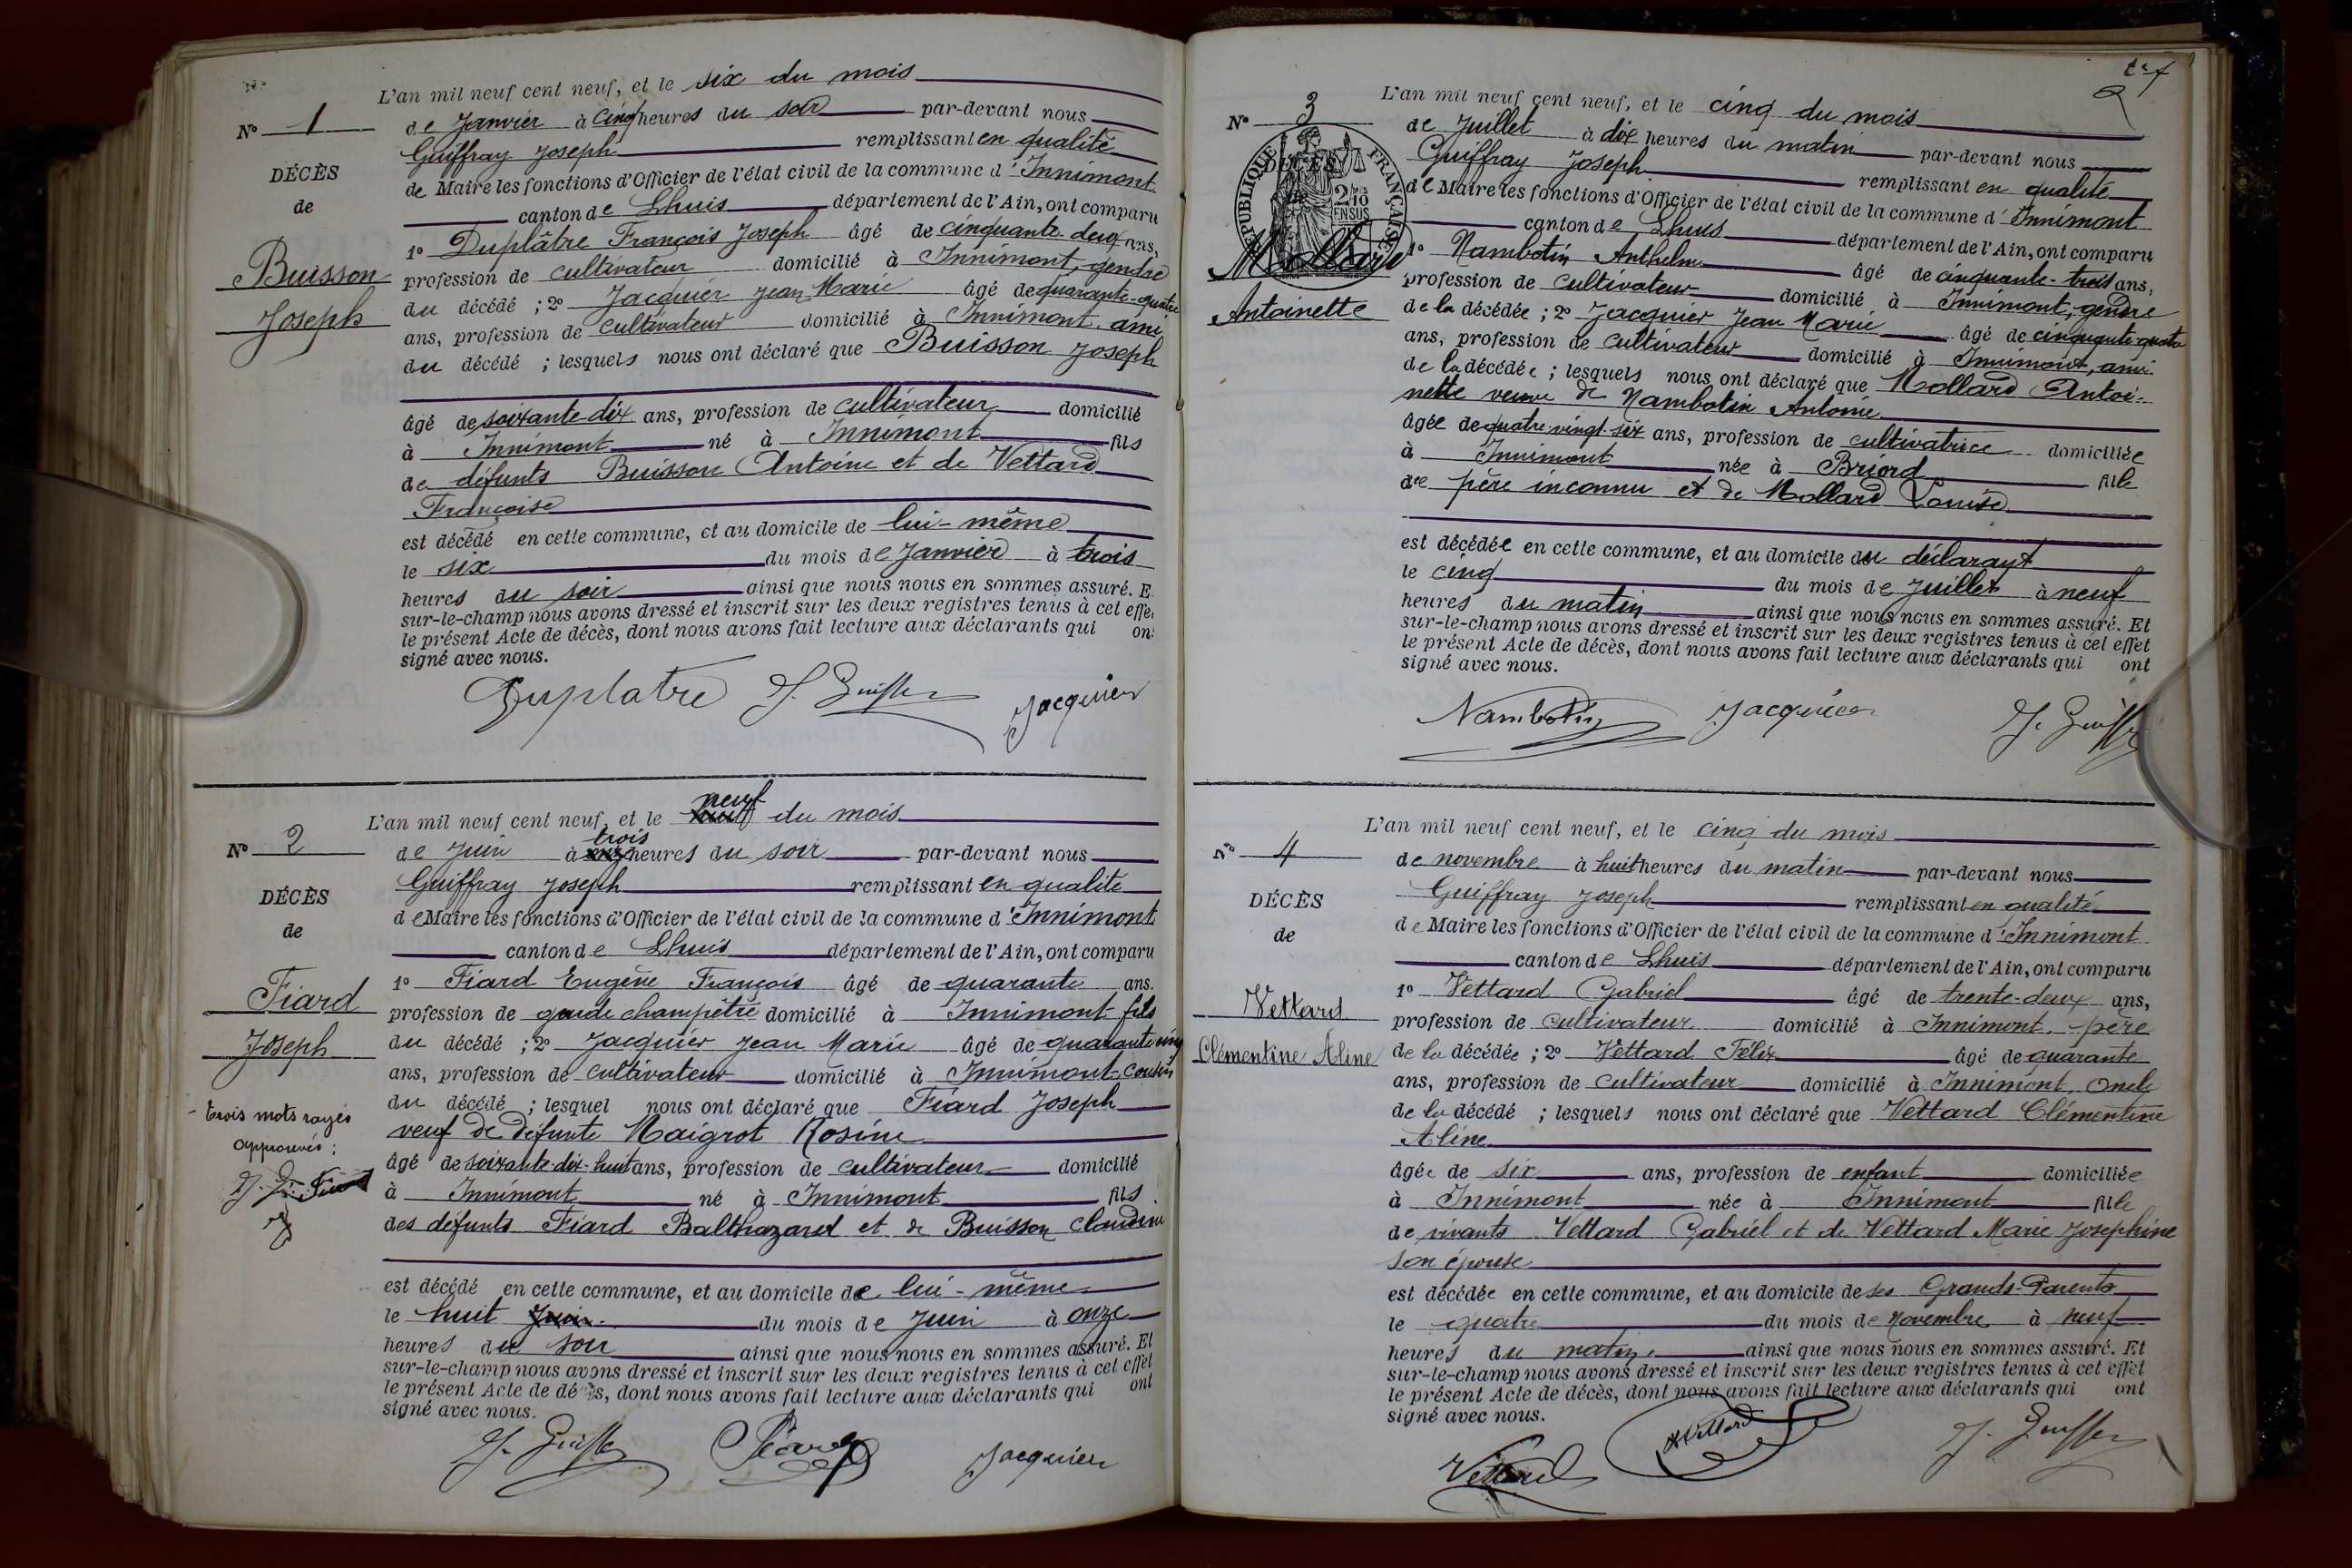 L'an mil neuf cent neuf, et le six du mois
N° 1
de Janvier à cinq heures du soir par-devant nous
Guiffray Joseph remplissant en qualité
DÉCÈS
de Maire les fonctions d'Officier de l'état civil de la commune d'Innimont
de
canton de Lhuis département de l'Ain, ont comparu
1° Duplâtre François Joseph âgé de cinquante-deux ans,
Buisson
profession de cultivateur domicilié à Innimont, gendre
Joseph
du décédé ; 2° Jacquier Jean Marie âgé de quarante-quatre
ans, profession de cultivateur domicilié à Innimont, ami
du décédé ; lesquels nous ont déclaré que Buisson Joseph
âgé de soixante-dix ans, profession de cultivateur domicilié
à Innimont né à Innimont fils
de défunts Buisson Antoine et de Vettard
Françoise
est décédé en cette commune, et au domicile de lui-même
le six du mois de Janvier à trois
heures du soir ainsi que nous nous en sommes assuré. E
sur-le-champ nous avons dressé et inscrit sur les deux registres tenus à cet effe
le présent Acte de décès, dont nous avons fait lecture aux déclarants qui on
signé avec nous.
Duplatre J. Guiffray Jacquier
neuf
L'an mil neuf cent neuf, et le huit du mois
N° 2
trois
de Juin à heures du soir par-devant nous
Guiffray Joseph remplissant en qualité
DÉCÈS
de Maire les fonctions d'Officier de l'état civil de la commune d'Innimont
de
canton de Lhuis département de l'Ain, ont comparu
1° Fiard Eugène François âgé de quarante ans.
Fiard
profession de garde champêtre domicilié à Innimont fils
Joseph
du décédé ; 2° Jacquier Jean Marie âgé de quarante-cinq
ans, profession de cultivateur domicilié à Innimont cousin
du décédé ; lesquel nous ont déclaré que Fiard Joseph
trois mots rayés
approuvés :
J. G. Fiard
J
veuf de défunte Maigrot Rosine
âgé de soixante-dix-huit ans, profession de cultivateur domicilié
à Innimont né à Innimont fils
des défunts Fiard Balthazard et de Buisson Claudine
est décédé en cette commune, et au domicile de lui-même
le huit Juin du mois de Juin à onze
heures du soir ainsi que nous nous en sommes assuré. Et
sur-le-champ nous avons dressé et inscrit sur les deux registres tenus à cet effet
le présent Acte de décès, dont nous avons fait lecture aux déclarants qui ont
signé avec nous.
J. Guiffray Fiard Jacquier
2
L'an mil neuf cent neuf, et le cinq du mois
N° 3
de Juillet à dix heures du matin par-devant nous
Guiffray Joseph remplissant en qualité
DÉCÈS
RÉPUBLIQUE FRANÇAISE
de Maire les fonctions d'Officier de l'état civil de la commune d'Innimont
canton de Lhuis département de l'Ain, ont comparu
Mollard
1° Nambotin Anthelme âgé de cinquante-trois ans,
profession de cultivateur domicilié à Innimont, gendre
Antoinette
de la décédée ; 2° Jacquier Jean Marie âgé de cinquante-quatre
ans, profession de cultivateur domicilié à Innimont, ami
de la décédée ; lesquels nous ont déclaré que Mollard Antoi-
nette veuve de Nambotin Antoine
âgée de quatre-vingt-six ans, profession de cultivatrice domiciliée
à Innimont née à Briord fille
de père inconnu et de Mollard Louise
est décédée en cette commune, et au domicile du déclarant
le cinq du mois de Juillet à neuf
heures du matin ainsi que nous nous en sommes assuré. Et
sur-le-champ nous avons dressé et inscrit sur les deux registres tenus à cet effet
le présent Acte de décès, dont nous avons fait lecture aux déclarants qui ont
signé avec nous.
Nambotin Jacquier J. Guiffray
L'an mil neuf cent neuf, et le cinq du mois
N° 4
de novembre à huit heures du matin par-devant nous
Guiffray Joseph remplissant en qualité
DÉCÈS
de Maire les fonctions d'Officier de l'état civil de la commune d'Innimont
de
canton de Lhuis département de l'Ain, ont comparu
1° Vettard Gabriel âgé de trente-deux ans,
Vettard
profession de cultivateur domicilié à Innimont père
Clémentine Aline
de la décédée ; 2° Vettard Félix âgé de quarante
ans, profession de cultivateur domicilié à Innimont, Oncle
de la décédé ; lesquels nous ont déclaré que Vettard Clémentine
Aline
âgée de six ans, profession de enfant domiciliée
à Innimont née à Innimont fille
de vivants Vettard Gabriel et de Vettard Marie Josephine
son épouse
est décédée en cette commune, et au domicile de ses Grands-Parents
le quatre du mois de Novembre à neuf
heures du matin ainsi que nous nous en sommes assuré. Et
sur-le-champ nous avons dressé et inscrit sur les deux registres tenus à cet effet
le présent Acte de décès, dont nous avons fait lecture aux déclarants qui ont
signé avec nous.
Vettard Vettard J. Guiffray